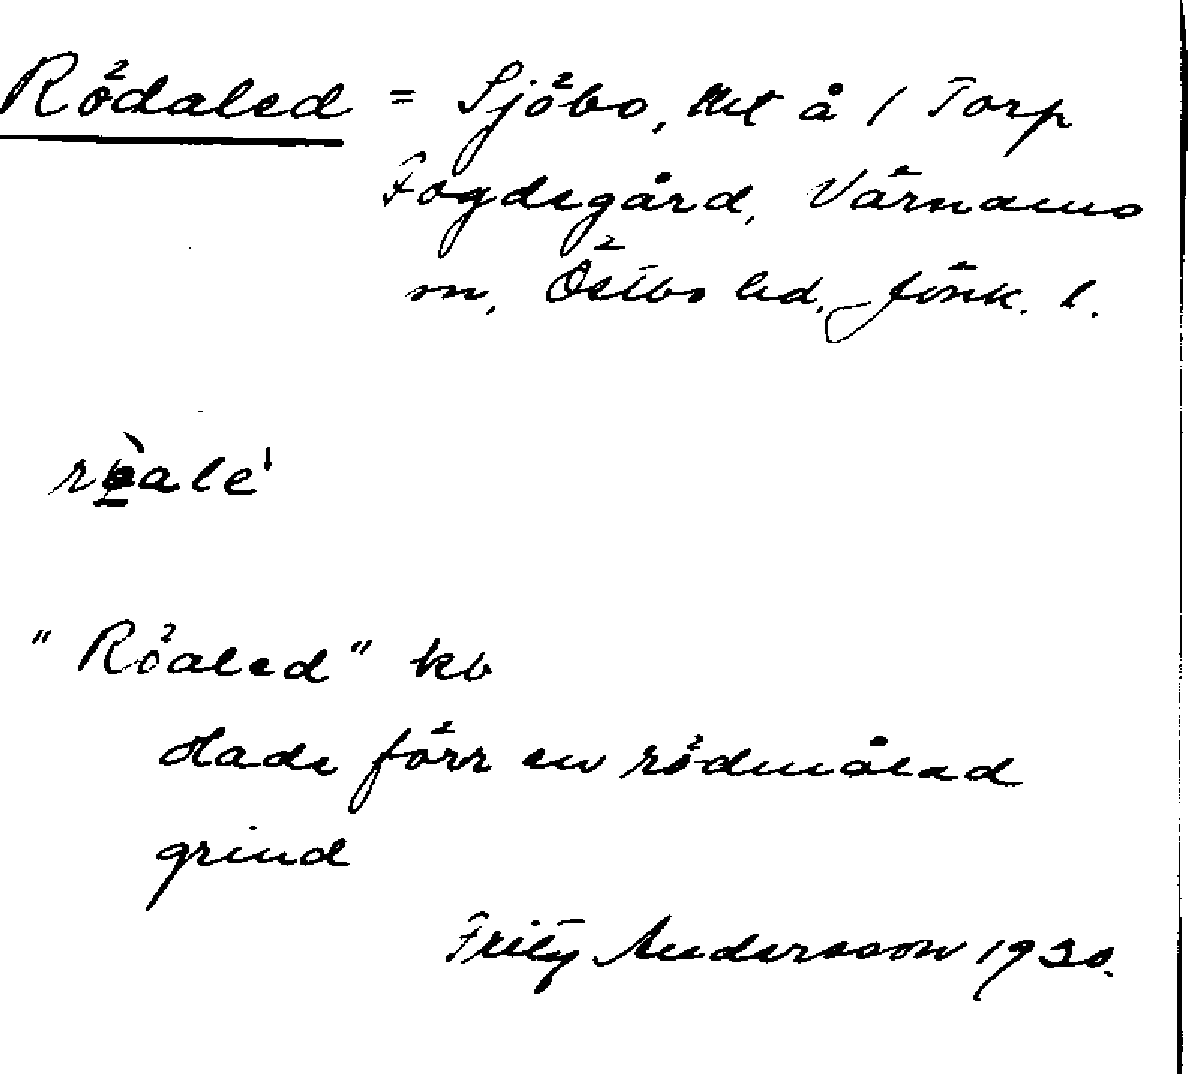 Rödaled = Sjöbo, lht å 1 Torp
Fogdegård, Värnamo
sn, Östbo hd, Jönk. l.
"Röaled" kb
Hade förr en rödmålad
grind
Fritz Andersson 1930.